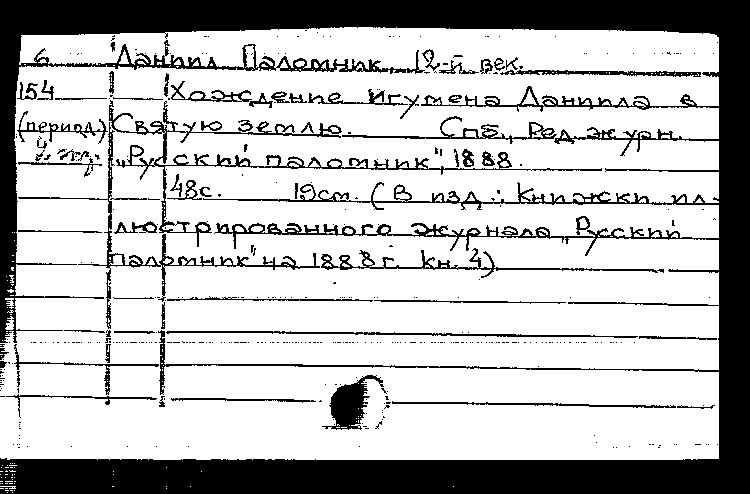 6 Даниил Паломник, 12-й век.
154 Хождение игумена Даниила в
(период.) Святую землю. Спб., Ред. журн.
2 экз. „Русский паломник", 1888.
48с. 19см. (В изд.: Книжки ил-
люстрированного журнала „Русский
паломник" на 1888г. кн. 4).